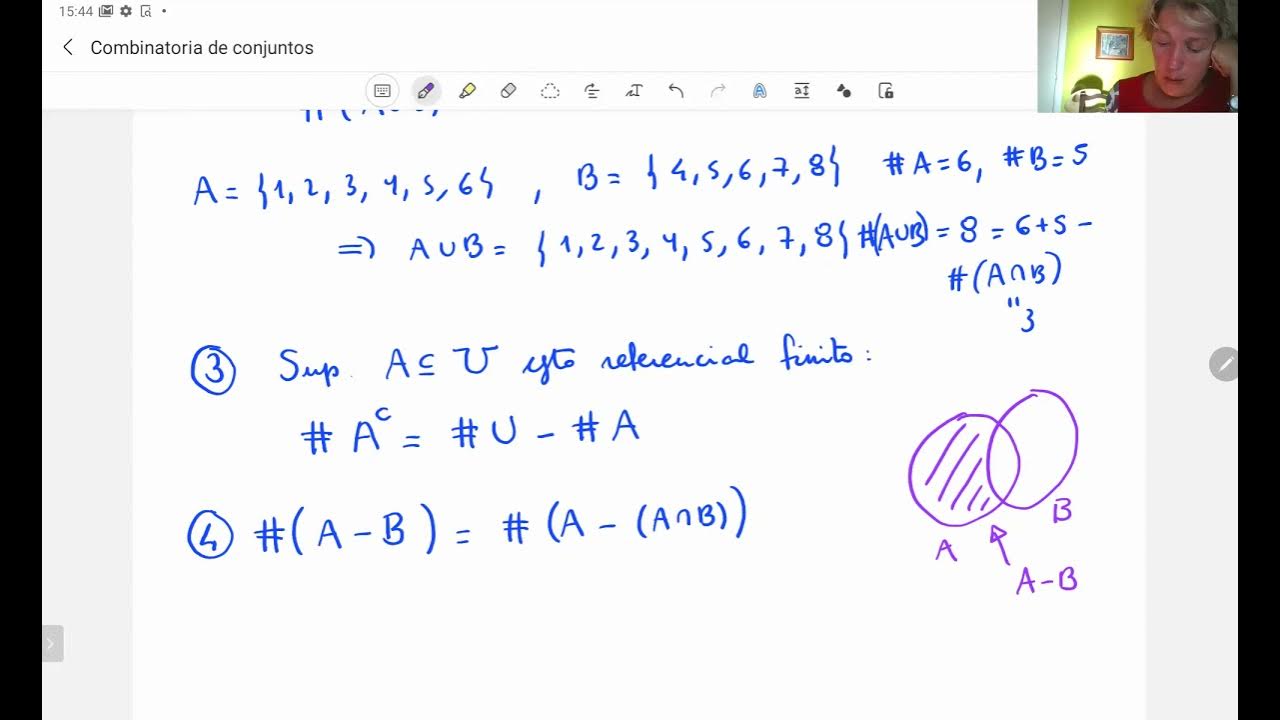 15:44
Combinatoria de conjuntos
A = {1, 2, 3, 4, 5, 6} , B = {4, 5, 6, 7, 8} #A = 6, #B = 5
⇒ A ∪ B = {1, 2, 3, 4, 5, 6, 7, 8} #(A∪B) = 8 = 6 + 5 -
#(A∩B)
"
3
③ Sup. A ⊆ U cjto referencial finito:
# A^c = # U - # A
④ #(A - B) = #(A - (A∩B))
A
B
A - B